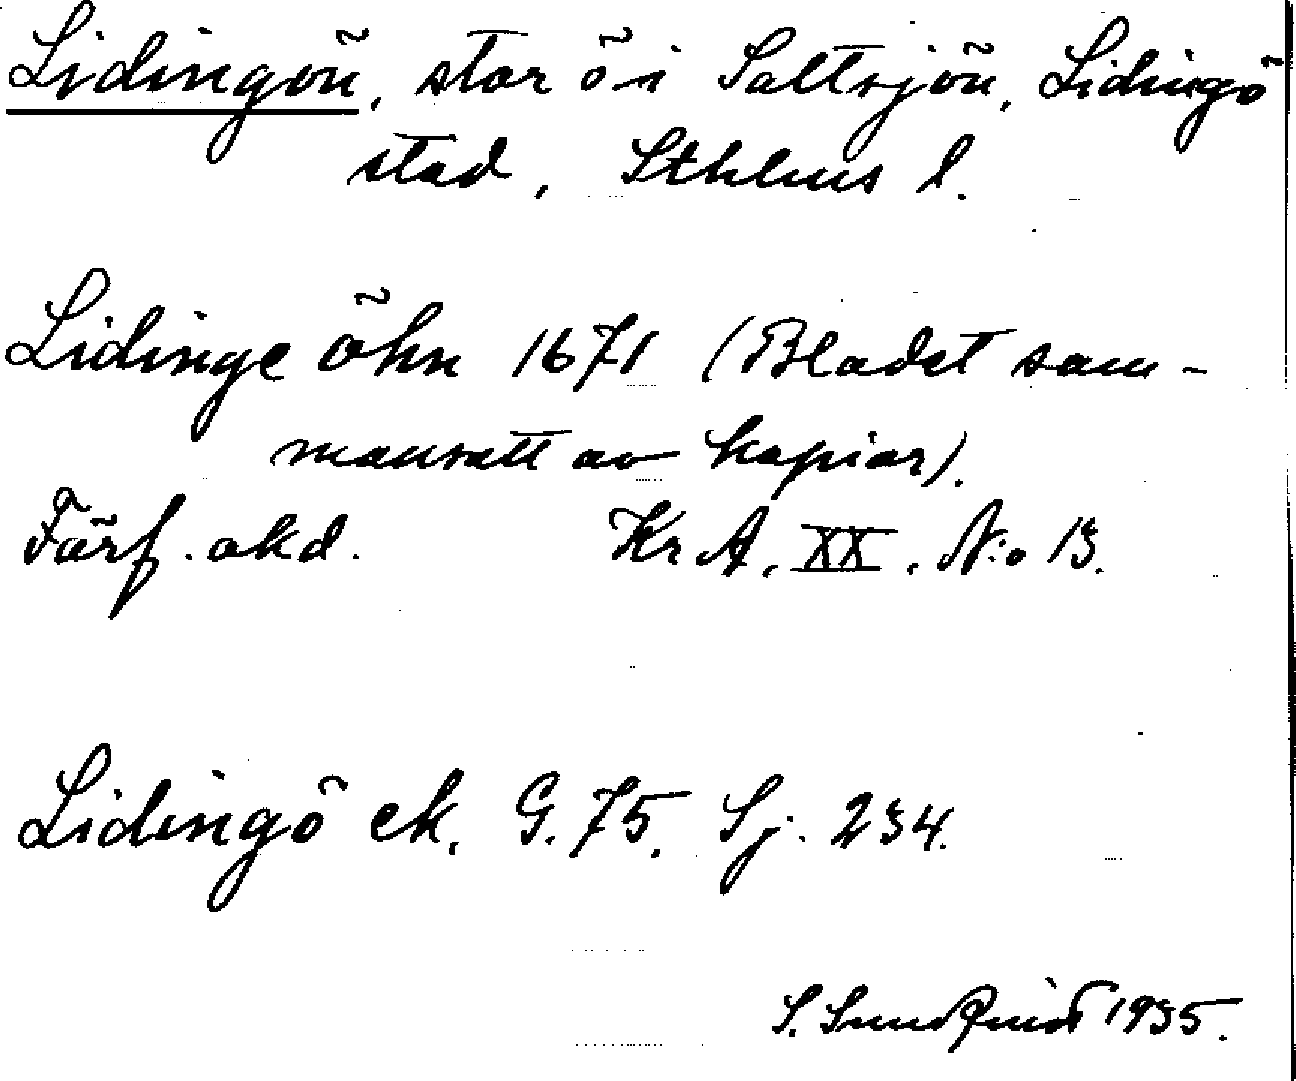 Lidingön, stor ö i Saltsjön, Lidingö
stad, Sthlms l.
Lidinge öhn 1671 (Bladet sam-
mansatt av kopior).
Förf. okd. Kr A. XX. N:o 13.
Lidingö ek. G. 75. Sj. 234.
S. Sundquist 1935.